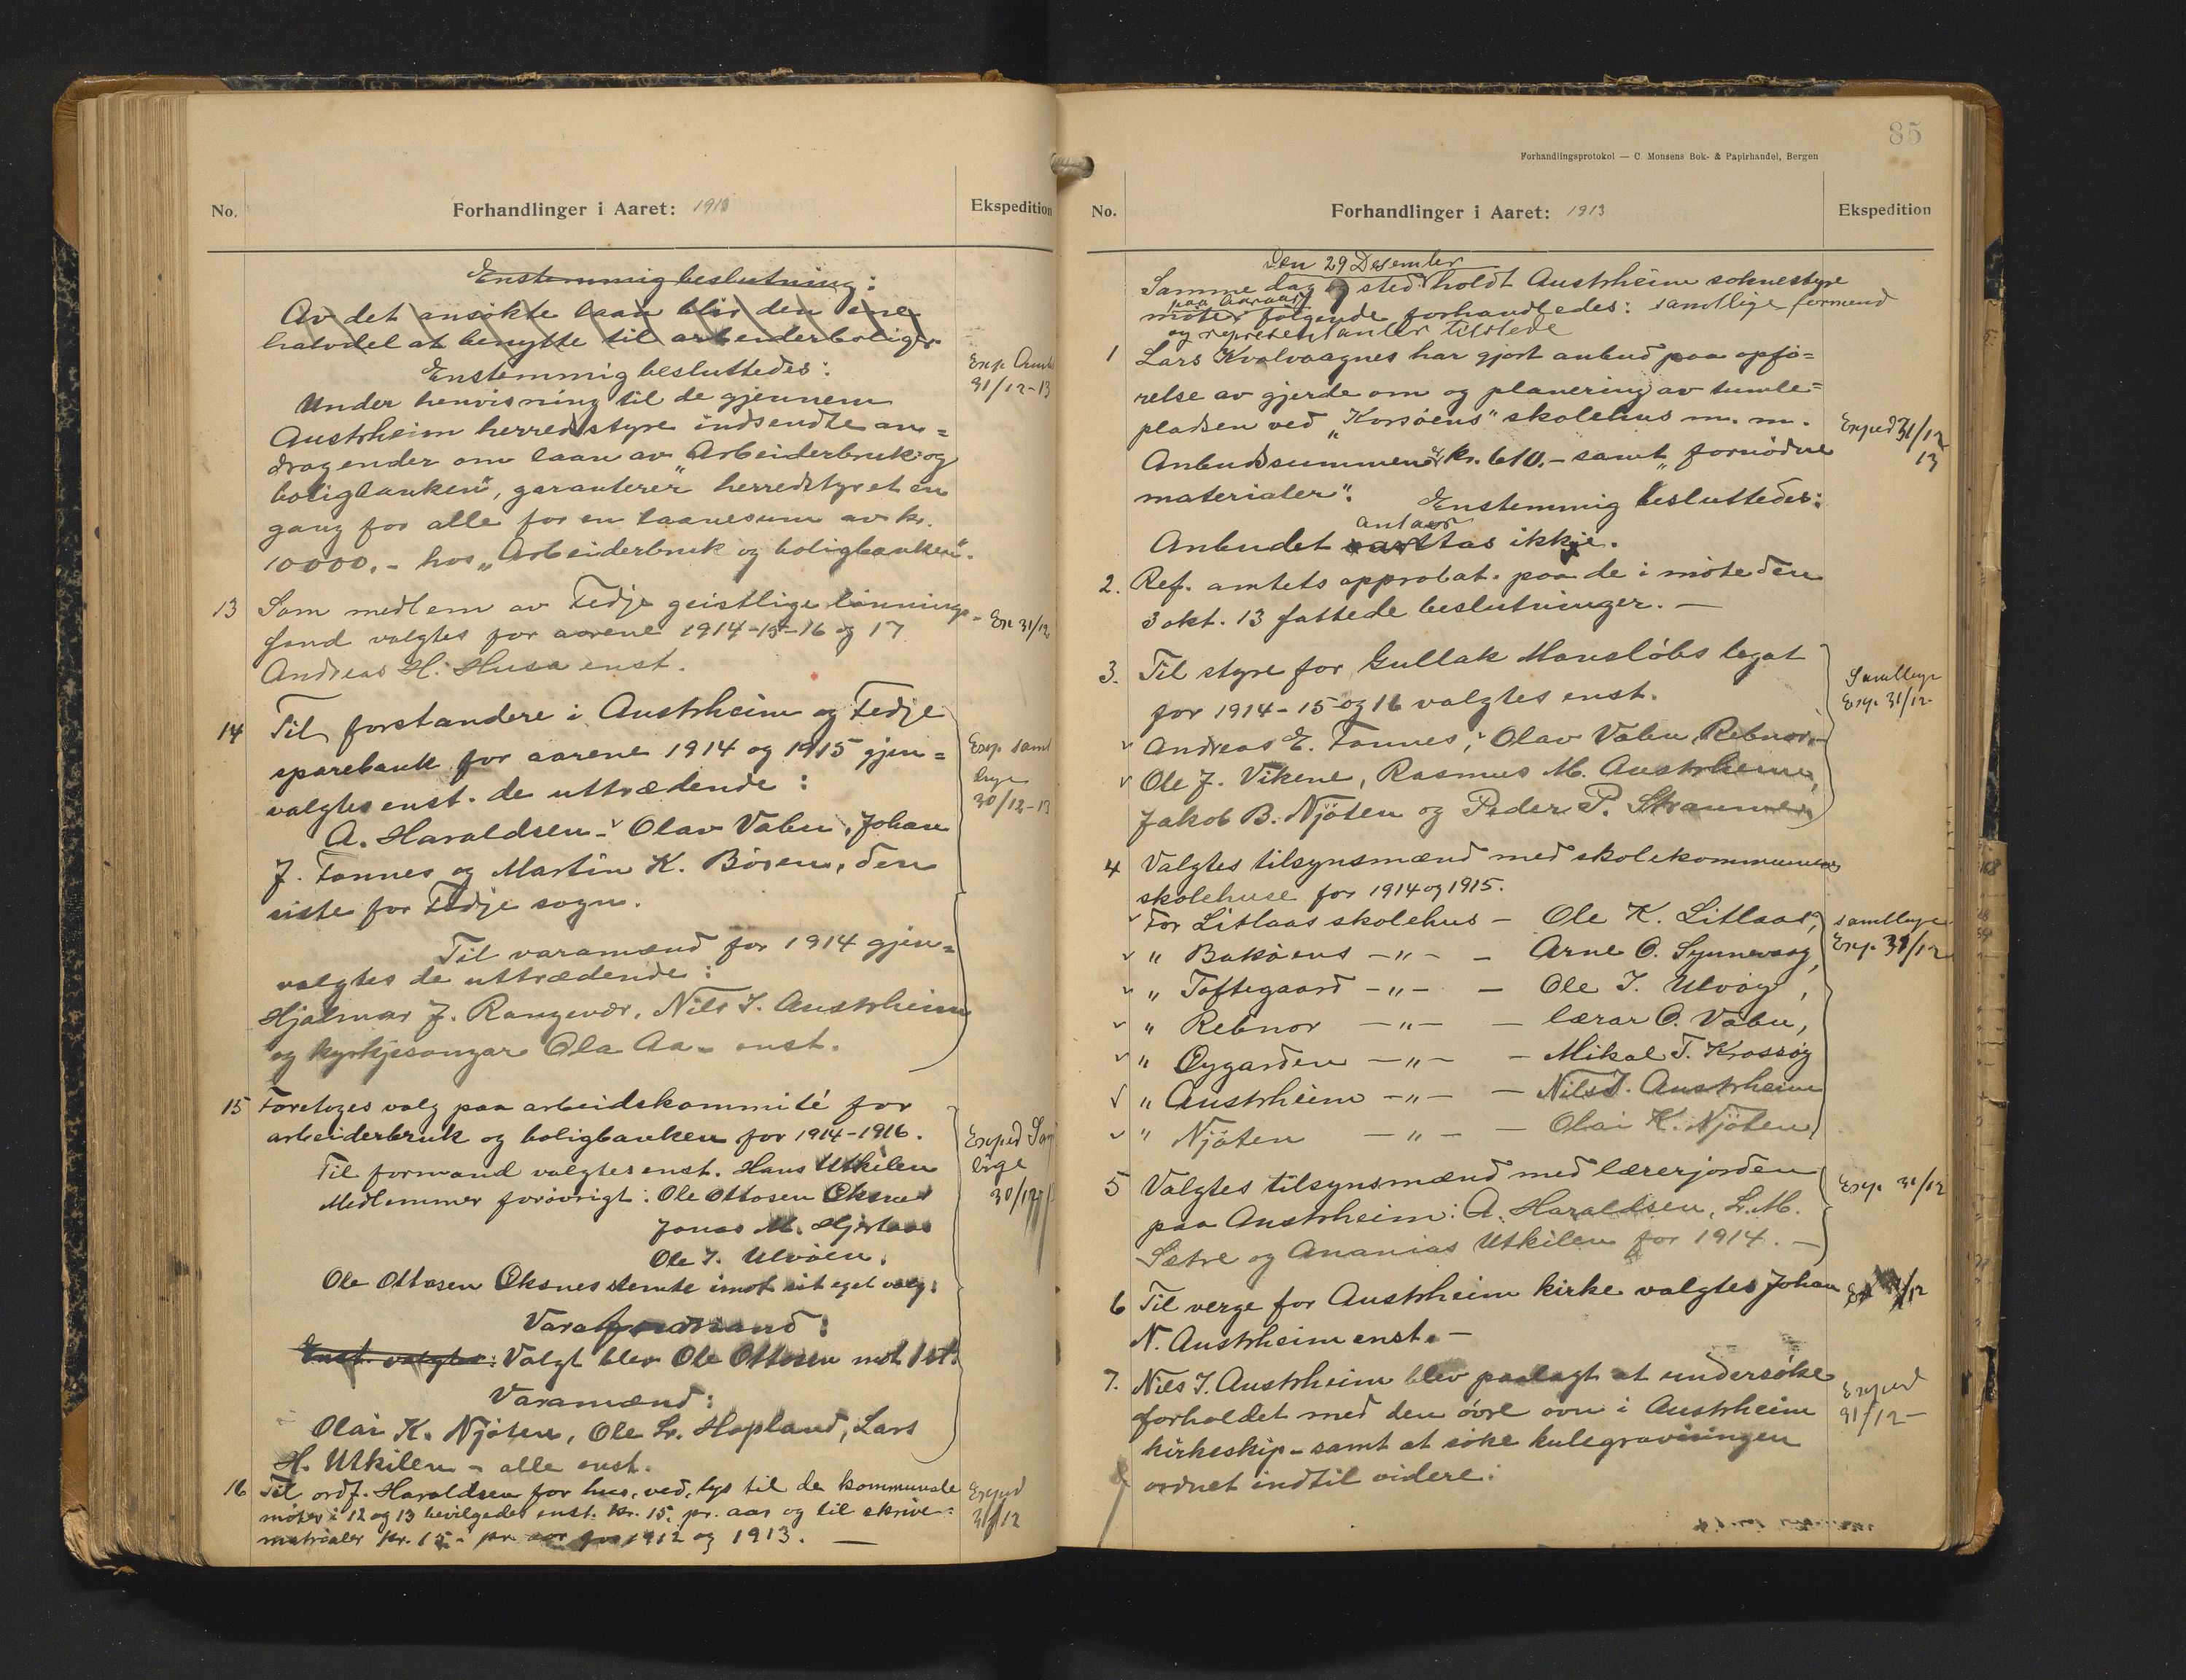 No.
Forhandlinger i Aaret: 1913
Ekspedition
Enstemmig beslutning:
Av det ansökte laan blir den ene
halvdel at benytte til arbeiderboliger
Enstemmig besluttedes:
Exp. Amtet
31/12-13
Under henvisning til de gjennem
Austrheim herredsstyre indsendte an=
dragender om laan av "Arbeiderbruk og
boligbanken", garanterer herredstyret en
gang for alle for en laanesum av kr.
10000.- hos "Arbeiderbruk og boligbanken".
13 Som medlem av Fedje geistlige lönnings-
Ex 31/12
fond valgtes for aarene 1914-15-16 og 17
Andreas H. Husa enst.
14 Til forstandere i Austrheim og Fedje
sparebank for aarene 1914 og 1915 gjen=
Exp. samt
lige
30/12-13
valgtes enst. de uttrædende:
A. Haraldsen - Olav Vabu, Johan
J. Fonnes og Martin K. Bören, den
siste for Fedje sogn.
Til varamænd for 1914 gjen=
valgtes de uttrædende:
Hjalmar J. Rangevær, Nils J. Austrheim
og kyrkjesongar Ola Aa - enst.
15 Foretoges valg paa arbeidskommité for
arbeiderbruk og boligbanken for 1914-1916.
Exped
lige
30/12
Til formand valgtes enst. Hans Utkilen
Medlemmer forövrigt: Ole Ottosen Øksnes
Jonas M. Hjertaas
Ole J. Ulvöen.
Ole Ottosen Øksnes stemte imot sit eget valg.
Varaformand:
Enst. valgtes: Valgt blev Ole Ottosen mot 1 st.
Varamænd:
Olai K. Njöten, Ole L. Hopland, Lars
H. Utkilen - alle enst.
16 Til ordf. Haraldsen for hus, ved, lys til de kommunale
Exped
31/12
möter i 12 og 13 bevilgedes enst. kr. 15,- pr. aar og til skrive=
matrialer kr. 15.- pr. aar for 1912 og 1913. —
85
Forhandlingsprotokol — C. Monsens Bok- & Papirhandel, Bergen
No.
Forhandlinger i Aaret: 1913
Ekspedition
Den 29 Desember
Samme dag og sted holdt Austrheim soknestyre
paa Aaraas
möte, følgende forhandledes: samtlige formend
og representanter tilstede
1 Lars Kvalvaagnes har gjort anbud paa opfö=
relse av gjerde om og planering av tumle=
pladsen ved "Korsöens" skolehus m. m.
Exped 31/12
13
Anbudssummen er kr. 610.- samt "fornödne
materialer". Enstemmig besluttedes:
antas
Anbudet ikkje.
2. Ref. amtets approbat. paa de i möte den
3 okt. 13 fattede beslutninger. —
3. Til styre for Gullak Monslöbs legat
Samtlige
Exp. 31/12
for 1914-15 og 16 valgtes enst.
Andreas E. Fonnes, Olav Vabu, Rebnor
Ole J. Vikene, Rasmus M. Austrheim,
Jakob B. Njöten og Peder P. Straume
4 Valgtes tilsynsmænd med skolekommunens
skolehuse for 1914 og 1915.
For Litlaas skolehus - Ole K. Litlaas,
samtlige
Exp. 31/12
" Baköens -"- - Arne O. Synnevaag,
" Toftegaard -"- - Ole J. Ulvöy,
" Rebnor -"- - lærar O. Vabu,
" Øygarden -"- - Mikal T. Krossöy
" Austrheim -"- - Nils J. Austrheim
" Njöten -"- - Olai K. Njöten
5 Valgtes tilsynsmænd med lærerjorden
Exp. 31/12
paa Austrheim: A. Haraldsen, L. M.
Sætre og Ananias Utkilen for 1914. —
6 Til verge for Austrheim kirke valgtes Johan
N. Austrheim enst. —
7. Nils J. Austrheim blev paalagt at undersöke
Exped
31/12 -
forholdet med den övre ovn i Austrheim
kirkeskip - samt at söke kulegravningen
ordnet indtil videre.